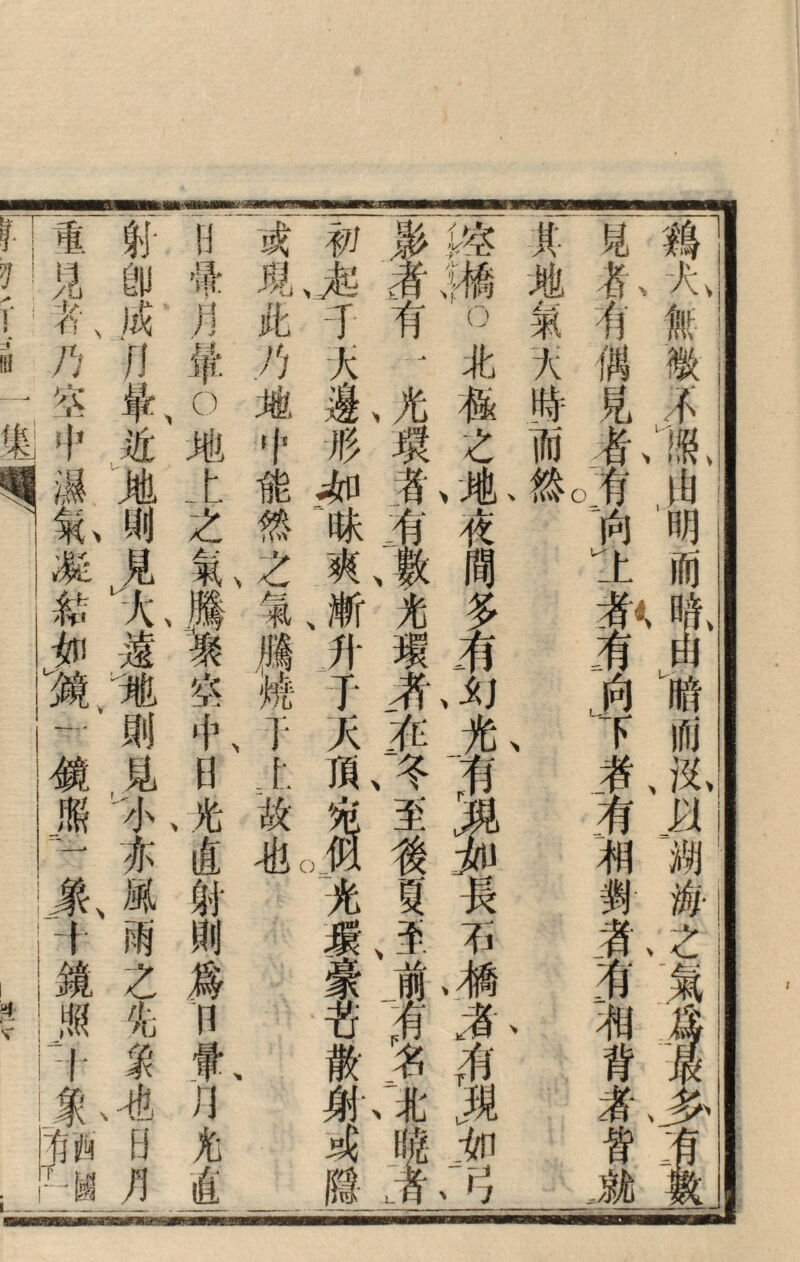 鷄犬、無微不照、由明而暗、由暗而没、以湖海之氣爲最多、有數
見者、有偶見者、有向上者、有向下者、有相對者、有相背者、皆就
其地氣天時而然。
空橋○北極之地、夜間多有幻光、有現如長石橋者、有現如弓
影者、有一光環者、有數光環者、在冬至後夏至前、有名北曉者、
初起于天邊、形如昧爽、漸升于天頂、宛似光環、豪芒散射、或隱
或現、此乃地中能然之氣、騰燒于上故也。
日暈月暈○地上之氣、騰聚空中、日光直射則爲日暈、月光直
射卽成月暈、近地則見大、遠地則見小、亦風雨之先象也日月
重見者、乃空中濕氣、凝結如鏡、一鏡照一象、十鏡照十象、西國有一
博物新編 一集